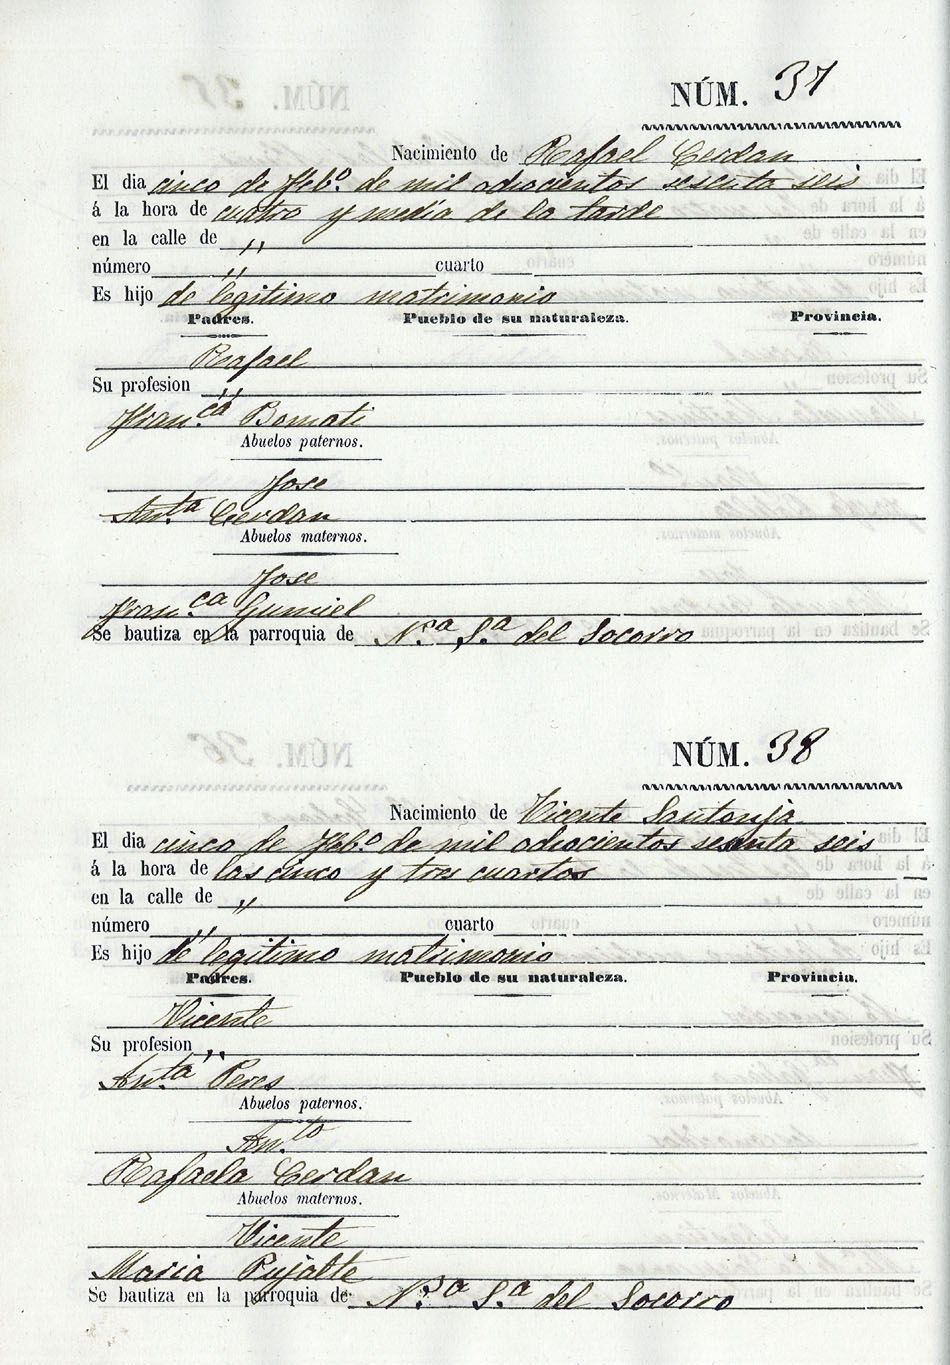 NÚM. 37
Nacimiento de Rafael Cerdan
El dia cinco de Feb.º de mil odiocientos sesenta seis
á la hora de cuatro y media de la tarde
en la calle de ,,
número ,, cuarto
Es hijo de legitimo matrimonio
Padres. Pueblo de su naturaleza. Provincia.
Rafael
Su profesion ,,
Fran.ca Bernati
Abuelos paternos.
Jose
Ant.a Cerdan
Abuelos maternos.
Jose
Fran.ca Gumiel
Se bautiza en la parroquia de N.a S.a del Socorro
NÚM. 38
Nacimiento de Vicente Santonja
El dia cinco de Feb.º de mil odiocientos sesenta seis
á la hora de las cinco y tres cuartos
en la calle de ,,
número ,, cuarto
Es hijo de legitimo matrimonio
Padres. Pueblo de su naturaleza. Provincia.
Vicente
Su profesion ,,
Ant.a Peres
Abuelos paternos.
Ant.o
Rafaela Cerdan
Abuelos maternos.
Vicente
Maria Pujalte
Se bautiza en la parroquia de N.a S.a del Socorro